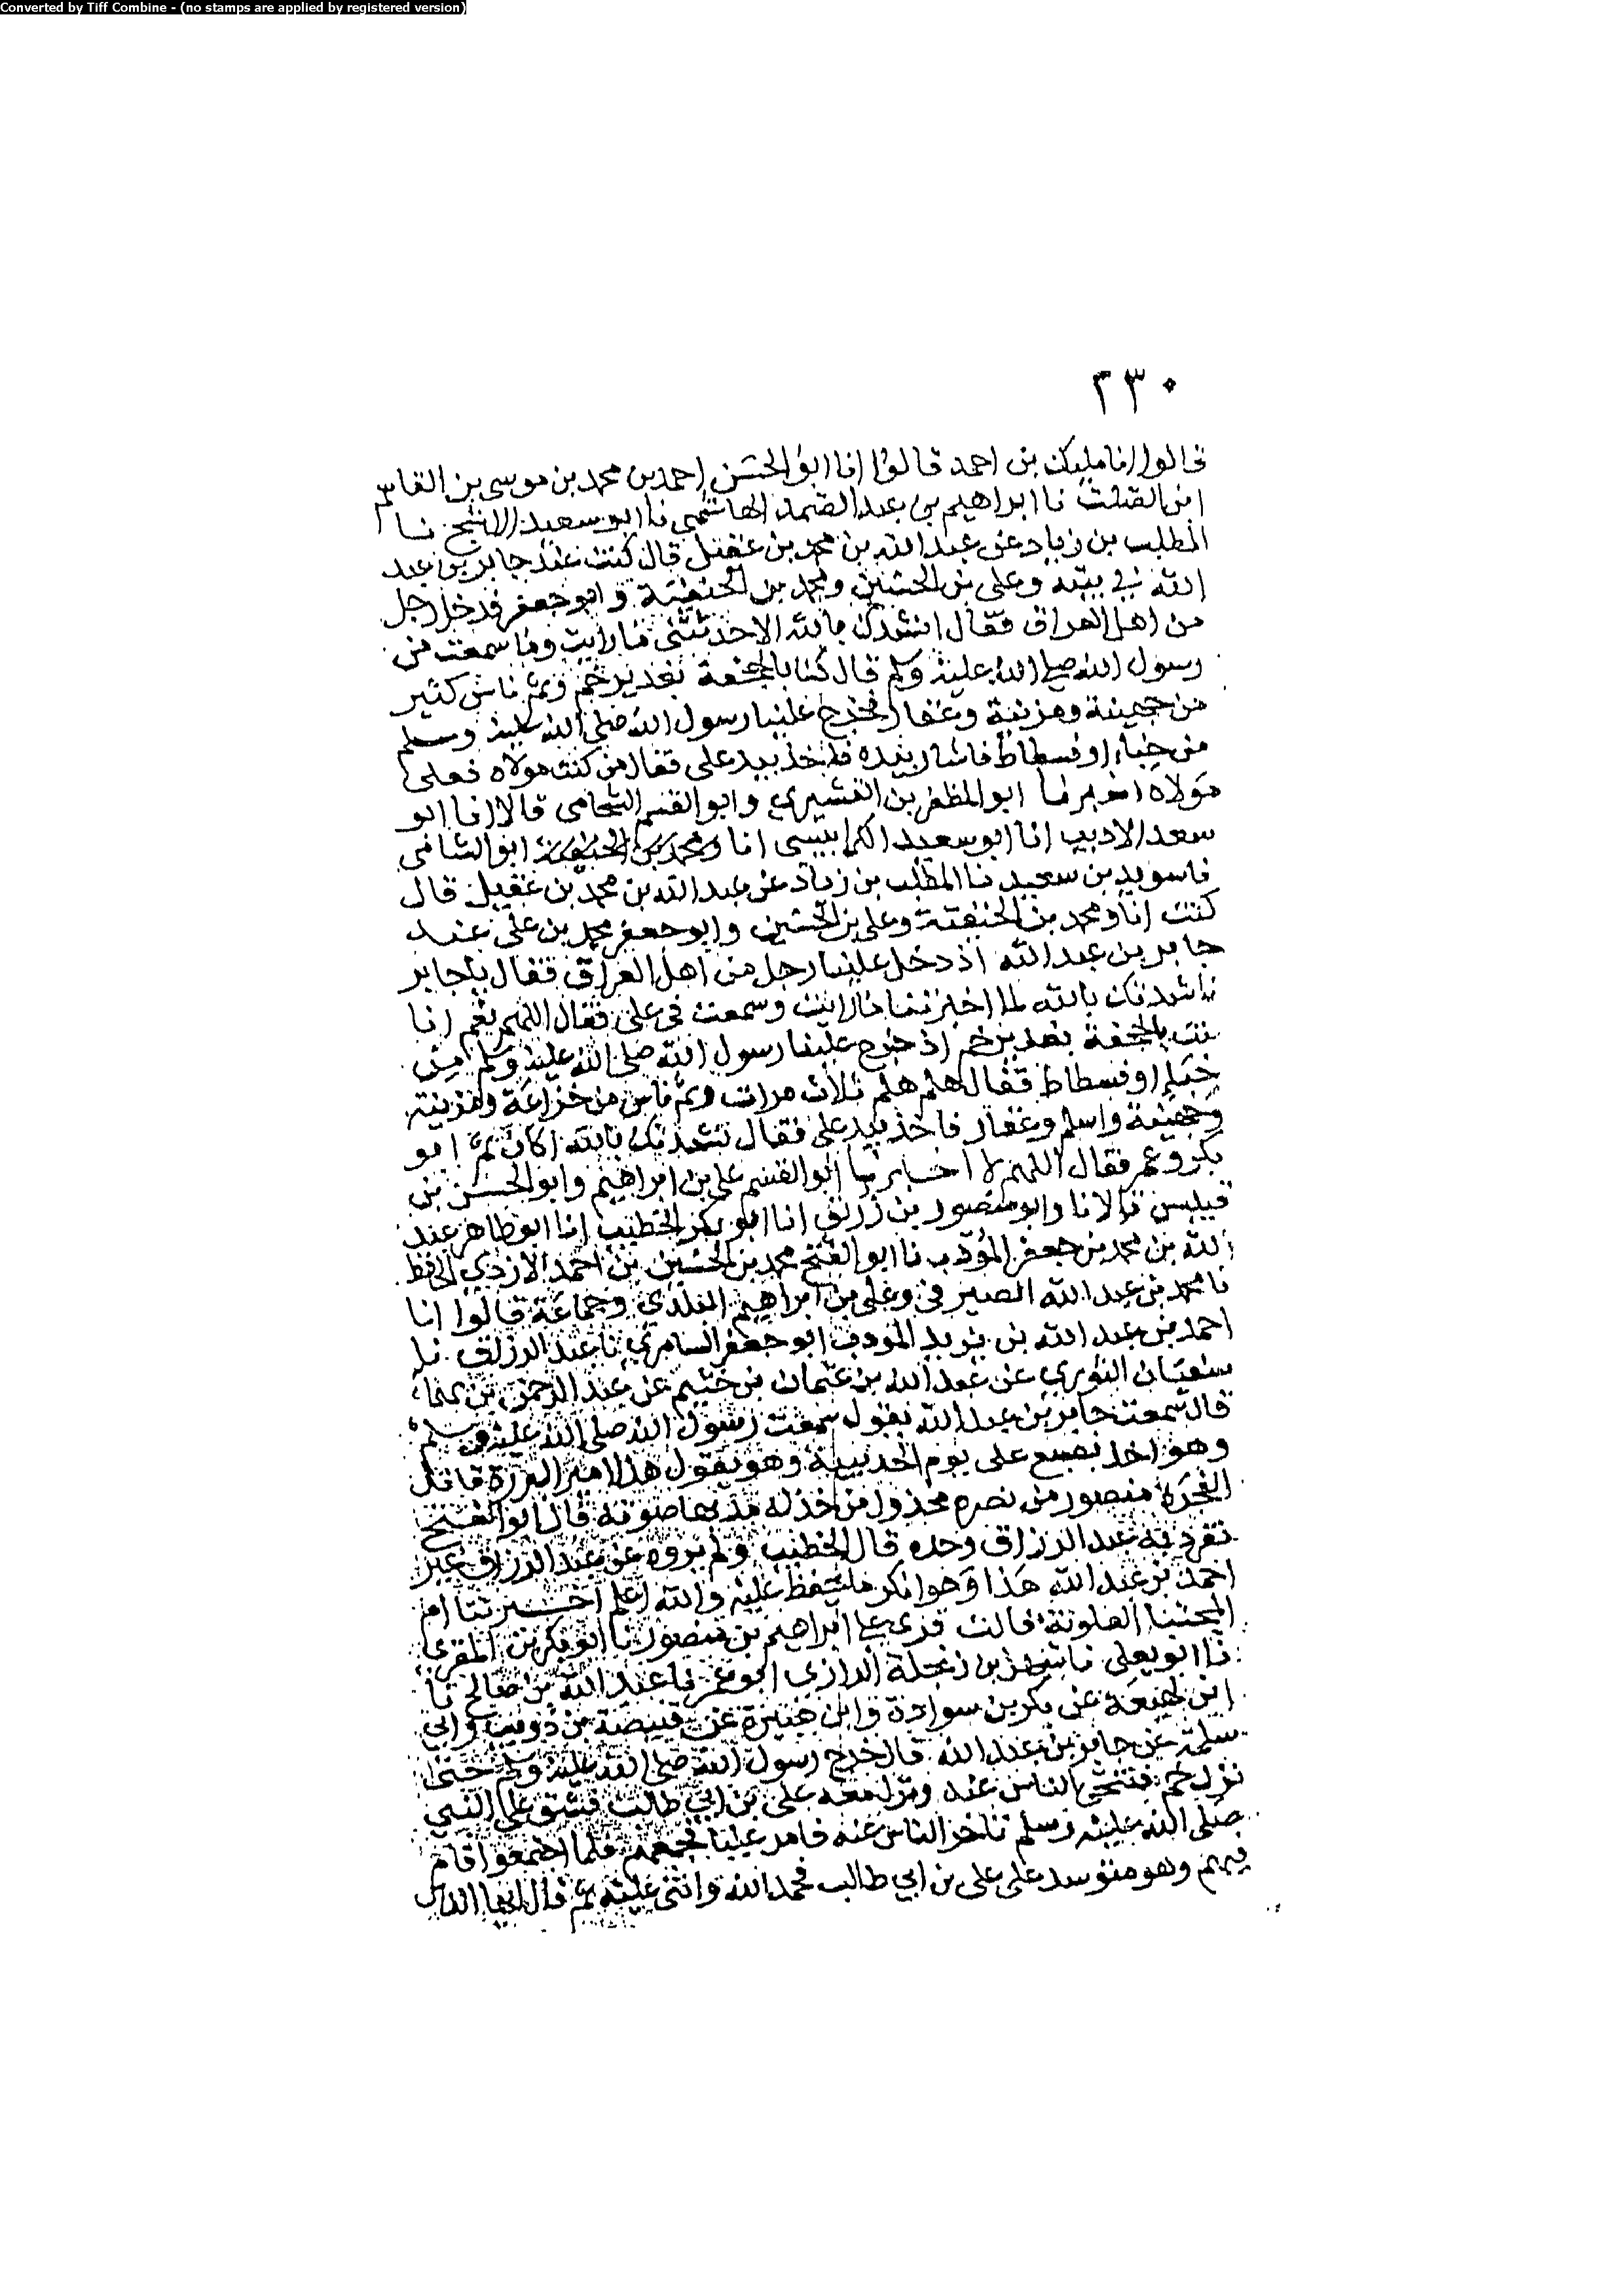 Converted by Tiff Combine - (no stamps are applied by registered version)
٢٣٠
قالوا انا مليك بن احمد قالوا انا ابو الحسن احمد بن محمد بن موسى بن القاسم
ابن الصلت نا ابراهيم بن عبد الصمد الهاشمي نا ابو سعيد الاشج نا
المطلب بن زياد عن عبد الله بن محمد بن عقيل قال كنت عند جابر بن عبد
الله في بيته وعلي بن الحسين ومحمد بن الحنفية وابو جعفر فدخل رجل
من اهل العراق فقال انشدك بالله الا حدثتني ما رايت وما سمعت من
رسول الله صلى الله عليه وسلم قال كنا بالجحفة بغدير خم وثم ناس كثير
من جهينة ومزينة وغفار فخرج علينا رسول الله صلى الله عليه وسلم
من خباء او فسطاط فاشار بيده فاخذ بيد علي فقال من كنت مولاه فعلي
مولاه اخبرنا ابو المظفر بن القشيري وابو القسم الشحامي قالا انا ابو
سعد الاديب انا ابو سعيد الكرابيسي انا ومحمد بن الحنفية ابو الشامي
نا سويد بن سعيد نا المطلب بن زياد عن عبد الله بن محمد بن عقيل قال
كنت انا ومحمد بن الحنفية وعلي بن الحسين وابو جعفر محمد بن علي عند
جابر بن عبد الله اذ دخل علينا رجل من اهل العراق فقال يا جابر
ناشدتك بالله لما اخبرتنا ما رايت وسمعت في علي فقال اللهم نعم انا
كنت بالجحفة بغدير خم اذ خرج علينا رسول الله صلى الله عليه وسلم من
خباء او فسطاط فقال هلم هلم ثلاث مرات وثم ناس من خزاعة ومزينة
وجهينة واسلم وغفار فاخذ بيد علي فقال نشدتك بالله اكان ثم ابو
بكر وعمر فقال اللهم لا اخبرنا ابو القسم علي بن ابراهيم وابو الحسن بن
قبيس قالا نا وابو منصور بن زريق انا ابو بكر الخطيب انا ابو طاهر عبد
الله بن محمد بن جعفر المؤدب نا ابو الفتح محمد بن الحسين بن احمد الازدي الحافظ
نا محمد بن عبد الله الصيرفي وعلي بن ابراهيم البلدي وجماعة قالوا انا
احمد بن عبد الله بن يزيد المودب ابو جعفر السامري نا عبد الرزاق نا
سفيان الثوري عن عبد الله بن عثمان بن خثيم عن عبد الرحمن بن بهمان
قال سمعت جابر بن عبد الله يقول سمعت رسول الله صلى الله عليه وسلم
وهو اخذ بضبع علي يوم الحديبية وهو يقول هذا امير البررة قاتل
الفجرة منصور من نصره مخذول من خذله مد بها صوته قال ابو الفتح
تفرد به عبد الرزاق وحده قال الخطيب ولم يروه عن عبد الرزاق غير
احمد بن عبد الله هذا وهو انكر ما حفظ عليه والله اعلم اخبرتنا ام
المجتبا العلوية قالت قرئ على ابراهيم بن منصور نا ابو بكر بن المقرئ
نا ابو يعلى نا سهل بن زنجلة الرازي ابو عمر نا عبد الله بن صالح نا
ابن لهيعة عن بكر بن سوادة وابن هبيرة عن قبيصة بن ذويب وابي
سلمة عن جابر بن عبد الله قال خرج رسول الله صلى الله عليه وسلم حتى
نزل خم فتنحى الناس عنه ونزل معه علي بن ابي طالب فشق على النبي
صلى الله عليه وسلم تاخر الناس عنه فامر عليا فجمعهم فلما اجتمعوا قام
فيهم وهو متوسد على علي بن ابي طالب فحمد الله واثنى عليه ثم قال ايها الناس